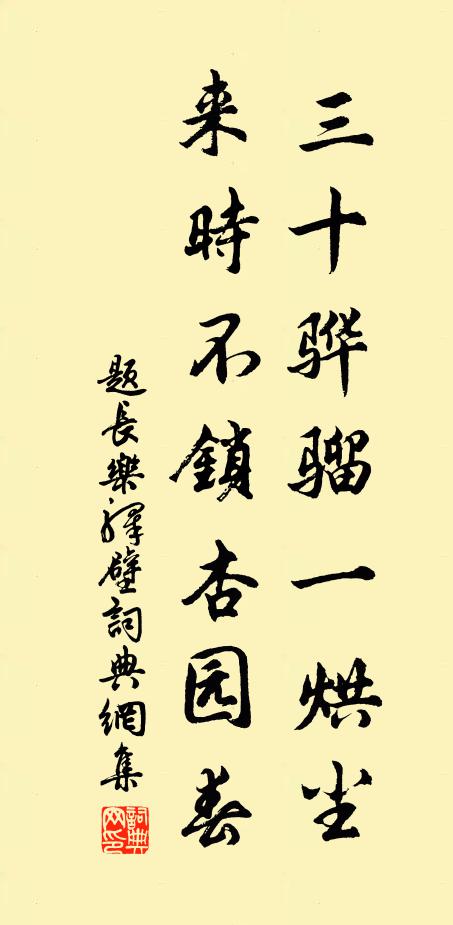 三十骅骝一烘尘
来時不鎖杏园春
題長樂驛壁詞典網集
詞典网印